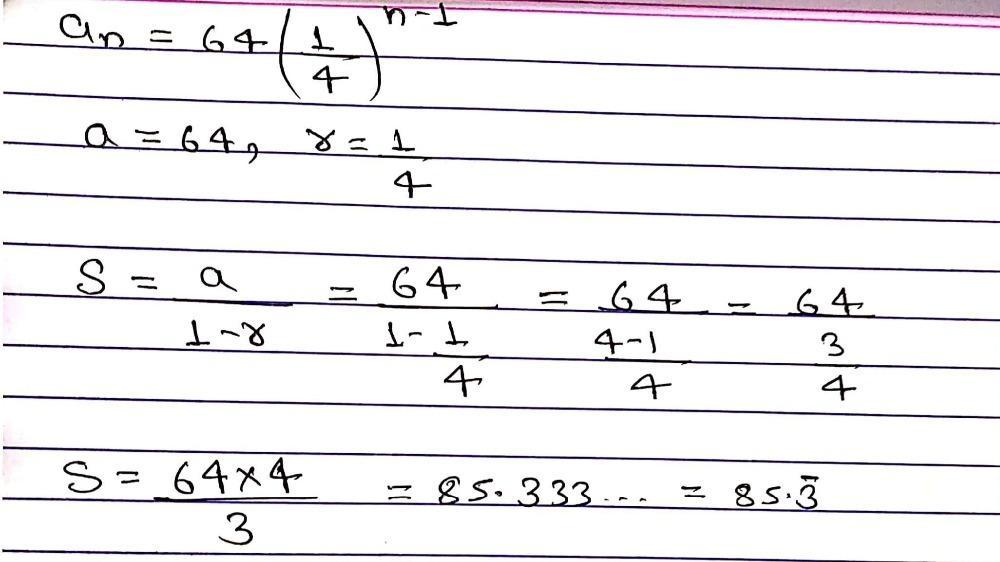 aₙ = 64(1/4)ⁿ⁻¹
a = 64, r = 1/4
S = a/(1-r) = 64/(1-1/4) = 64/((4-1)/4) = 64/(3/4)
S = (64×4)/3 = 85.333... = 85.3̄